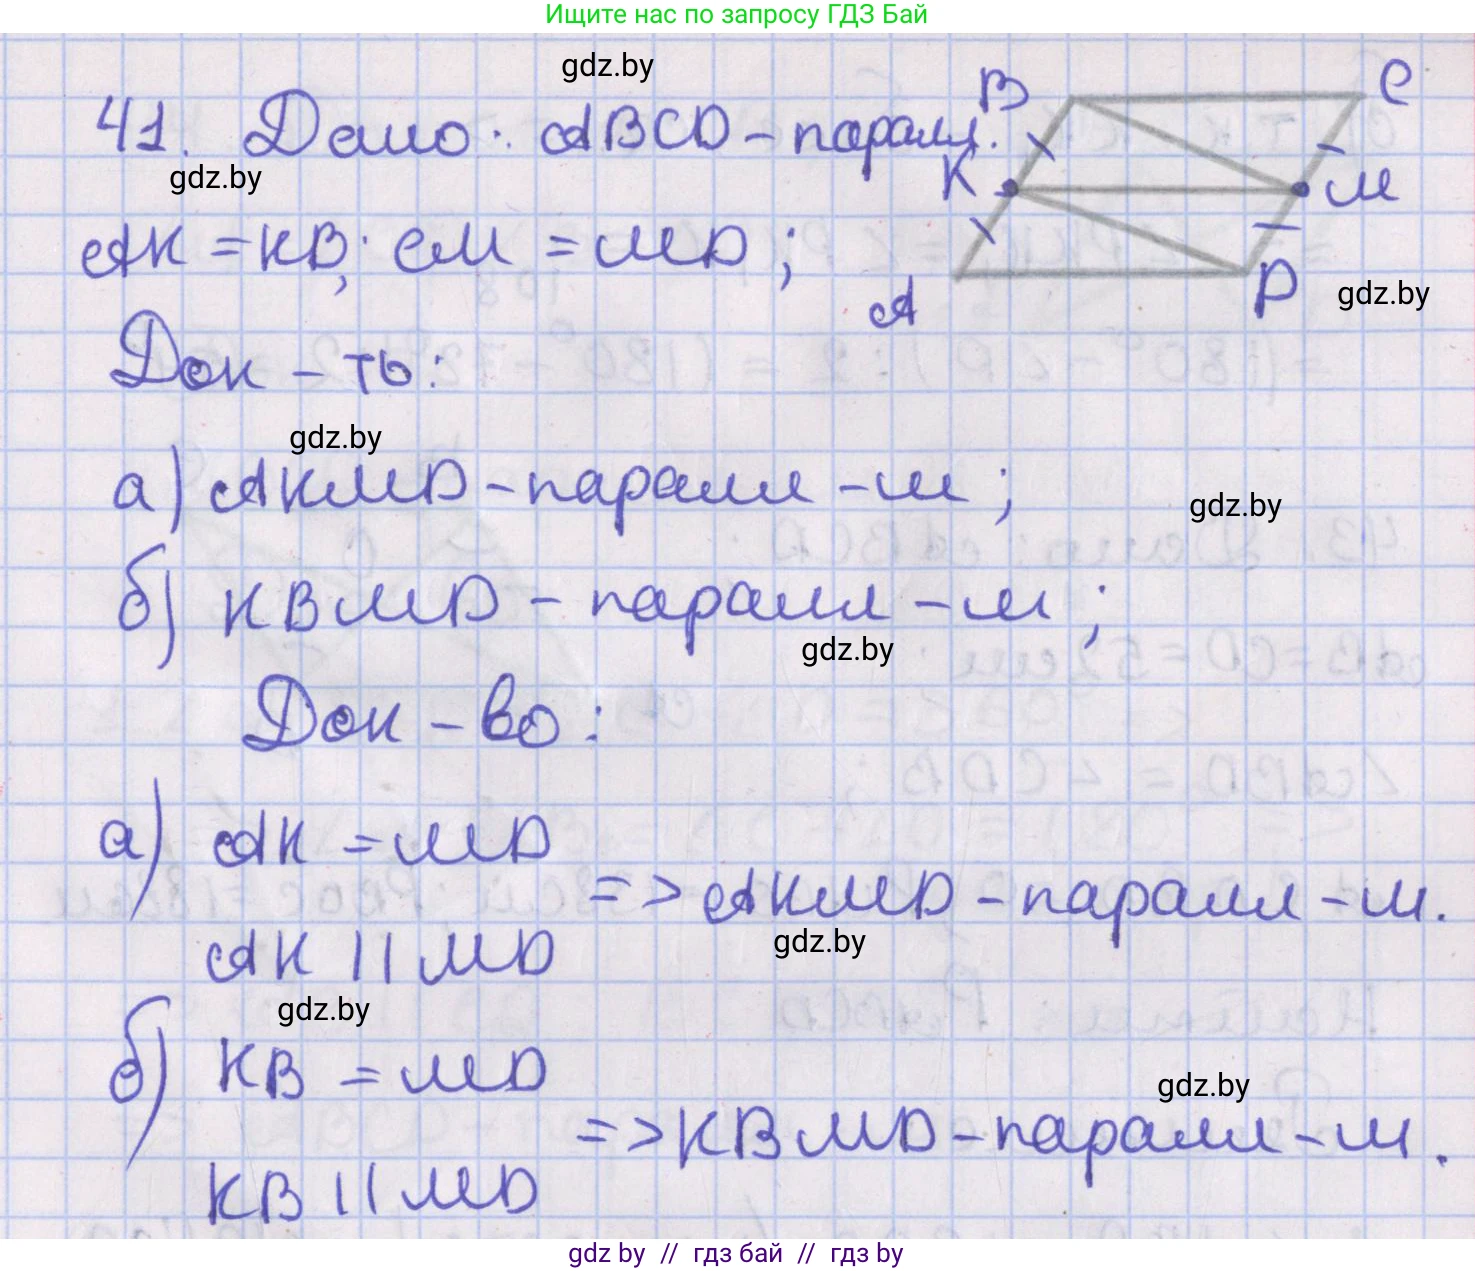 Ищите нас по запросу ГДЗ Бай
gdz.by
41. Дано: ABCD - паралл.
gdz.by
AK = KB; CM = MD;
Док - ть:
gdz.by
а) AKMD - паралл - м;
gdz.by
б) KBMD - паралл - м;
gdz.by
Док - во:
а) AK = MD
=> AKMD - паралл - м.
AK || MD
gdz.by
gdz.by
б) KB = MD
gdz.by
=> KBMD - паралл - м.
KB || MD
B
C
K
M
A
D
gdz.by
gdz by // гдз бай // гдз by